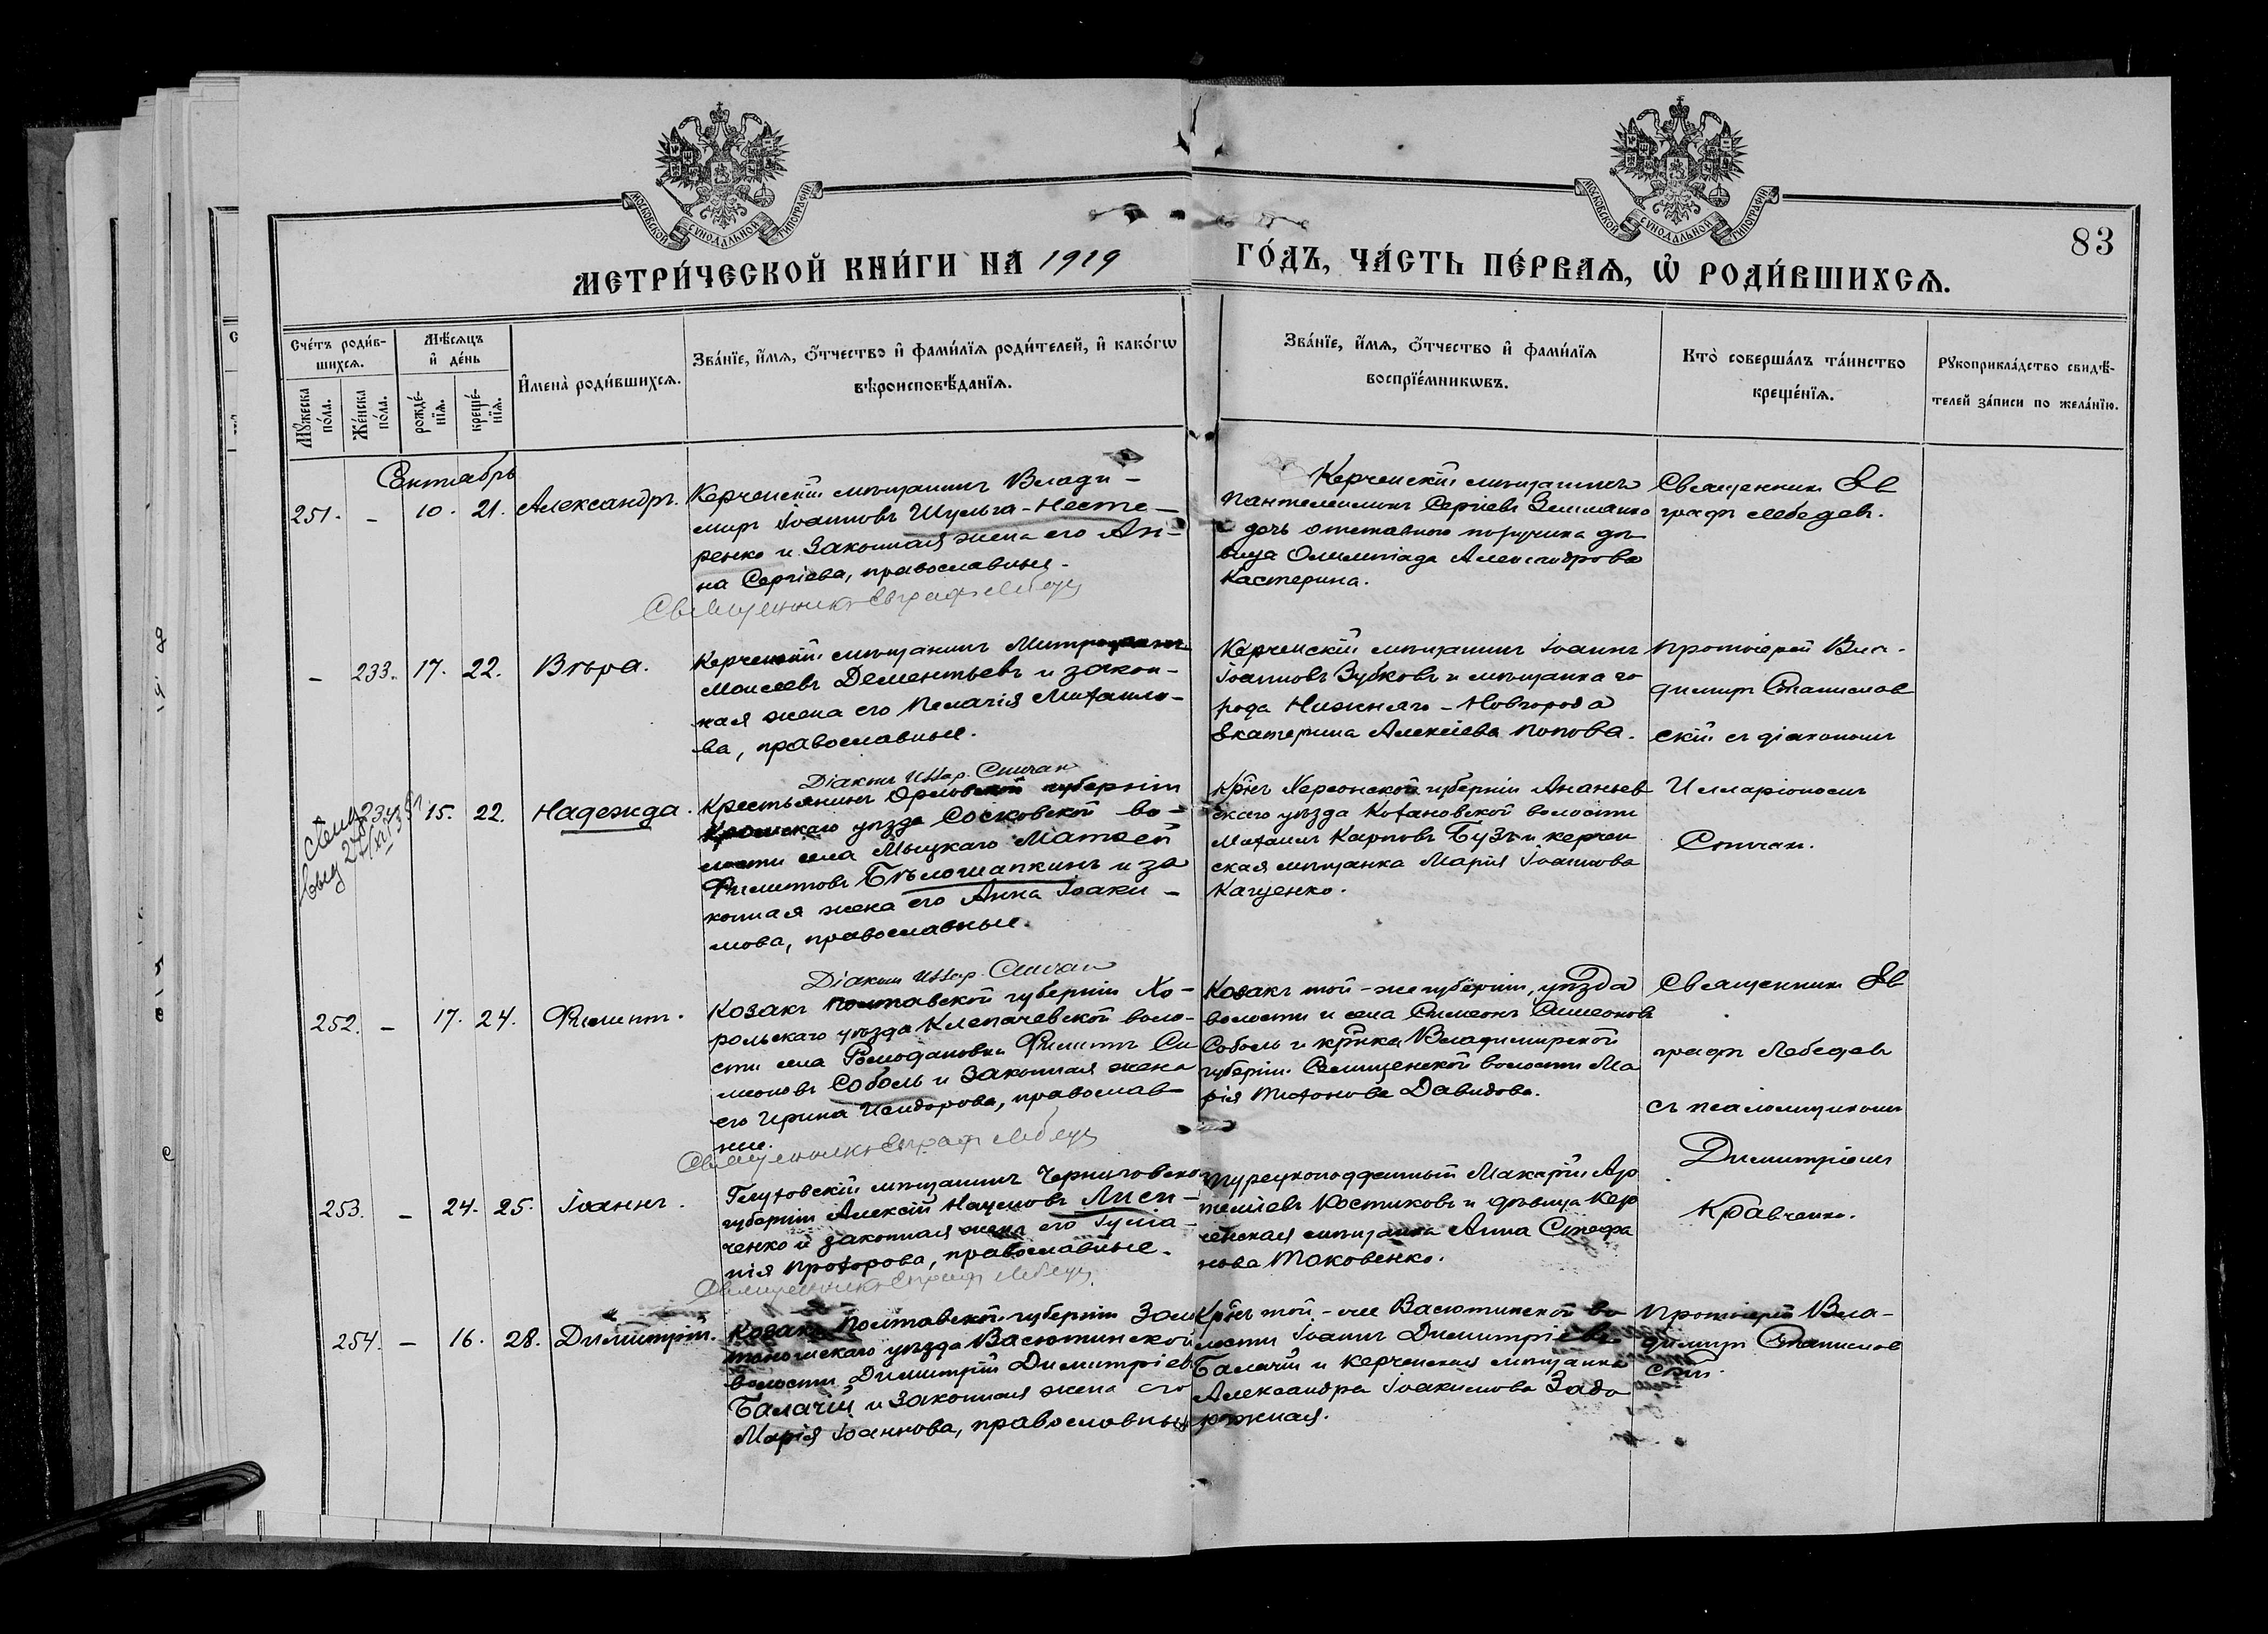 МОСКОВСКОЙ СѴНОДАЛЬНОЙ ТИПОГРАФІИ
МОСКОВСКОЙ СѴНОДАЛЬНОЙ ТИПОГРАФІИ
83
МЕТРИ́ЧЕСКОЙ КНИ́ГИ НА 1919 ГО́ДЪ, ЧА́СТЬ ПЕ́РВАѦ, Ѡ҆ РОДИ́ВШИХСѦ.
Сче́тъ роди́в-
шихсѧ.
Мꙋ́жеска
по́ла.
Же́нска
по́ла.
Мѣ́сѧцъ
и҆ де́нь
рожде́-
нїѧ.
креще́-
нїѧ.
И҆мена̀ роди́вшихсѧ.
Зва́нїе, и҆́мѧ, ѻ҆́тчество и҆ фами́лїѧ роди́телей, и҆ како́гѡ
вѣроисповѣ́данїѧ.
Зва́нїе, и҆́мѧ, ѻ҆́тчество и҆ фами́лїѧ
воспрїе́мникѡвъ.
Кто̀ соверша́лъ та́инство
креще́нїѧ.
Рꙋкоприкла́дство свидѣ́-
телей за́писи по жела́нїю.
Сентябрь
251. - 10. 21. Александръ.
Керченскій мѣщанинъ Влади-
миръ Іоанновъ Шульга-Несте-
ренко и законная жена его Ан-
на Сергіева, православные.
Священникъ Евграфъ Лебедев
Керченскій мѣщанинъ
Пантелеимонъ Сергіевъ
и дочь отставного поручика дѣ-
вица Олимпіада Александрова
Кастерина.
Священникъ Ев
графъ Лебедевъ.
- 233. 17. 22. Вѣра.
Керченскій мѣщанинъ
Моисеевъ Дементьевъ и закон-
ная жена его Пелагія Михаило-
ва, православные.
Діаконъ Иллар. Спичак
Керченскій мѣщанинъ Іоаннъ
Іоанновъ Зубковъ и мѣщанка го
рода Нижняго-Новгорода
Екатерина Алексіева Попова.
Протоіерей Вла-
димиръ Станислав
скій съ діакономъ
Илларіономъ
Спичак.
234 15. 22. Надежда.
Крестьянинъ Орловской губерніи
Кромскаго уѣзда Сосковской во-
лости села Мыцкаго Матѳей
Филиповъ Бѣлошапкинъ и за
конная жена его Анна Іоаки-
мова, православные.
Діаконъ Иллар. Спичак
Кр҃нъ Херсонской губерніи Ананьев
скаго уѣзда Кохановской волости
Михаилъ Карповъ Бузъ и керчен
ская мѣщанка Марія Іоаннова
Кащенко.
252. - 17. 24. Филиппъ.
Козакъ Полтавской губерніи Хо-
рольскаго уѣзда Клепачевской воло-
сти села Ромодановки Филиппъ Си
меоновъ Соболь и законная жена
его Ирина Исидорова, православ-
ные.
Священникъ Евграфъ Лебедев
Козакъ той-же губерніи, уѣзда
волости и села Симеонъ Симеоновъ
Соболь и кр҃нка Владимирской
губерніи волости Ма
рія Тихонова Давидова.
Священникъ Ев
графъ Лебедевъ
съ псаломщикомъ
Димитріемъ
Кравченко.
253. - 24. 25. Іоаннъ.
Глуховскій мѣщанинъ Черниговской
губерніи Алексій Наумовъ Лиси-
ченко и законная жена его Гуліа-
нія Прохорова, православные.
Священникъ Евграфъ Лебедев
Турецкоподданный Макарій Ар
теміевъ Костиковъ и дѣвица Кер
ченская мѣщанка Анна Стефа
нова Маковенко.
254. - 16. 28. Димитрій.
Козакъ Полтавской губерніи Золо
тоношскаго уѣзда Васютинской
волости Димитрій Димитріев
Балачій и законная жена его
Марія Іоаннова, православные
Кр҃нъ той-же Васютинской во
лости Іоаннъ Димитріевъ
Балачій и Керченская мѣщанка
Александра Іоакимова Задо
рожная.
Протоіерей Вла-
димиръ Станислав
скій.